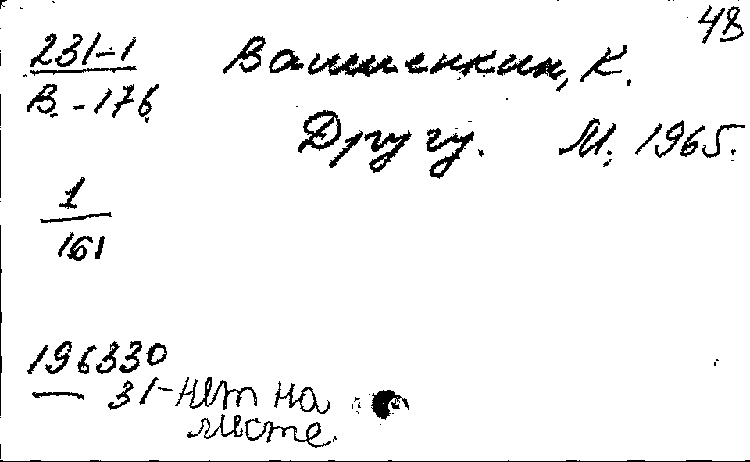 48
231-1 Ваншенкин, К.
В.-176
Другу. М., 1965.
1
161
196330
— 31-нет на
месте.